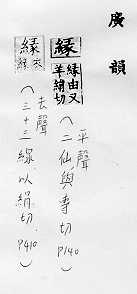 廣韻
緣 緣由又羊絹切
(平聲
二仙與專切
P140)
緣 衣緣
(去聲
三十三線以絹切
P410)